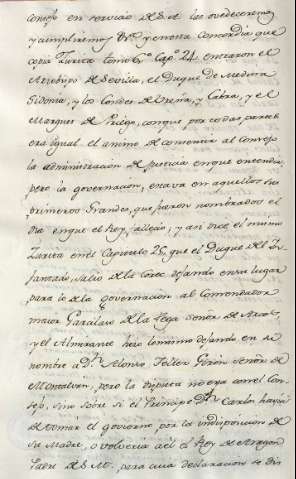 consejo en servicio de S.A. las ovedeceremos
y cumpliremos &c.ª y en esta Concordia que
copia Zurita tomo 6.º Cap.º 24. entraron el
Arzobispo de Sevilla, el Duque de Medina
Sidonia, y los Condes de Ureña, y Cabra, y el
Marques de Priego, conque por todas partes
era igual el animo de cometer al Consejo
la administracion de justicia en que entendia,
pero la governacion, estava en aquellos
primeros Grandes, que fueron nombrados el
dia en que el Rey fallecio; y asi dice el mismo
Zurita en el Capitulo 25, que el Duque del In-
fantado, salio de la Corte dejando en su lugar
para lo de la governacion al Comendador
maior Garcilaso de la Vega Señor de
y el Almirante hizo lo mismo dejando en su
nombre a D.n Alonso Tellez Giron Señor de
Montalvan, pero la disputa no era con el Con-
sejo, sino sobre si el Principe D.n Carlos havia
de tomar el govierno, por la indisposicion de
su Madre, o volveria a el el Rey de Aragon
Padre de S.M. para cuia declaracion se dis-